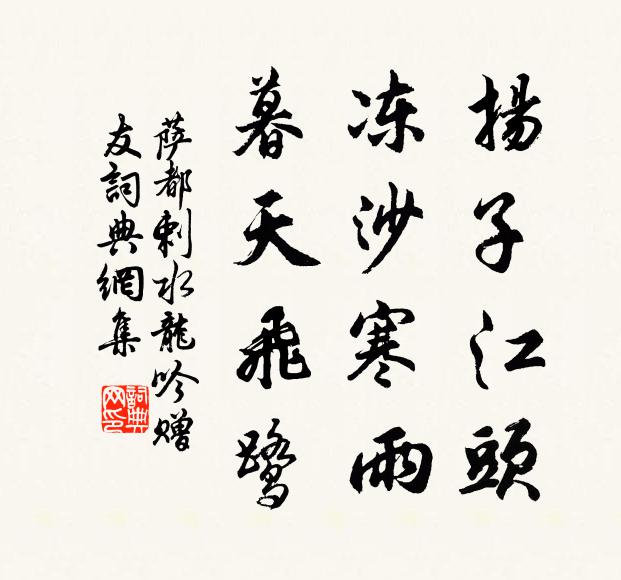 揚子江頭
冻沙寒雨
暮天飛鹭
萨都剌水龍吟赠
友詞典網集
詞典网印